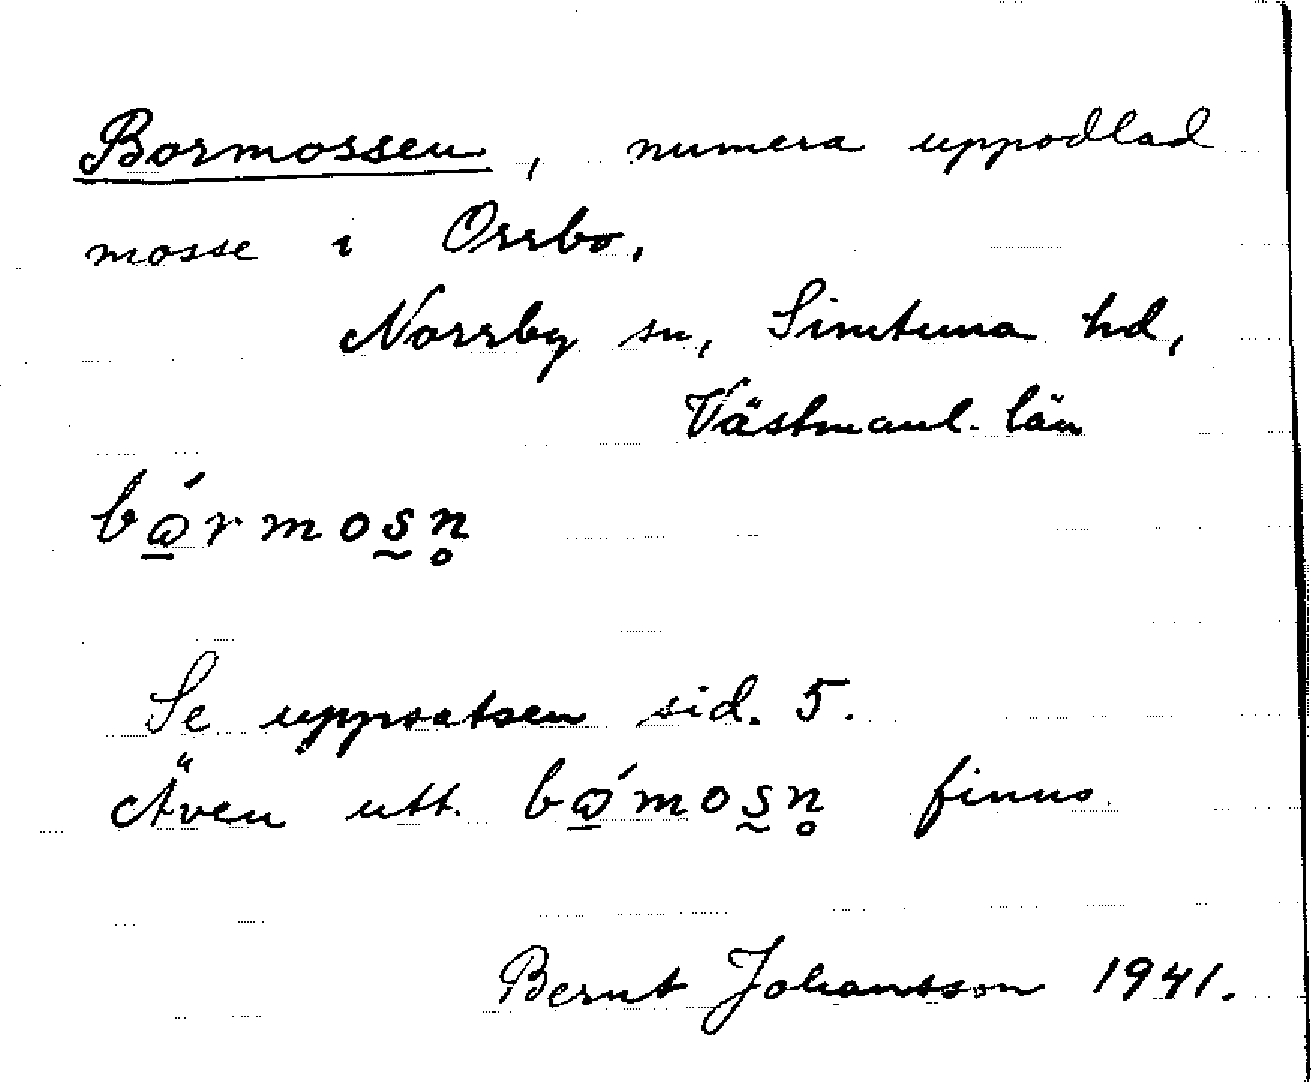 Bormossen, numera uppodlad
mosse i Orrbo,
Norrby sn, Simtuna hd,
Västmanl. län
bώ̲rmos̰n̥
Se uppsatsen sid. 5.
Även utt. bώ̲mos̰n̥ finns.
Bernt Johansson 1941.